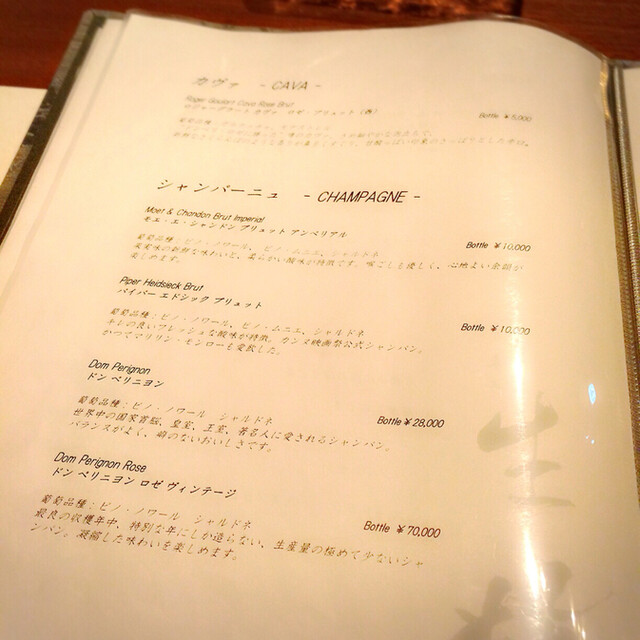 カヴァ - CAVA -
Roger Goulart Cava Rose Brut
ロジャーグラート カヴァ ロゼ・ブリュット（西） Bottle ￥5,000
シャンパーニュ - CHAMPAGNE -
Moet & Chandon Brut Imperial
モエ・エ・シャンドン ブリュット アンペリアル Bottle ￥10,000
葡萄品種：ピノ・ノワール、ピノ・ムニエ、シャルドネ
果実味の新鮮な味わいと、柔らかい酸味が特徴です。喉ごしも優しく、心地よい余韻が
楽しめます。
Piper Heidsieck Brut
パイパー エドシック ブリュット Bottle ￥10,000
葡萄品種：ピノ・ノワール、ピノ・ムニエ、シャルドネ
キレの良いフレッシュな酸味が特徴。カンヌ映画祭公式シャンパン。
かつてマリリン・モンローも愛飲した。
Dom Perignon
ドン ペリニヨン
葡萄品種：ピノ・ノワール シャルドネ Bottle ￥28,000
世界中の国家首脳、皇室、王室、著名人に愛されるシャンパン。
バランスがよく、癖のないおいしさです。
Dom Perignon Rose
ドン ペリニヨン ロゼ ヴィンテージ
葡萄品種：ピノ・ノワール シャルドネ Bottle ￥70,000
最良の収穫年中、特別な年にしか造らない、生産量の極めて少ないシャ
ンパン。凝縮した味わいを楽しめます。
生